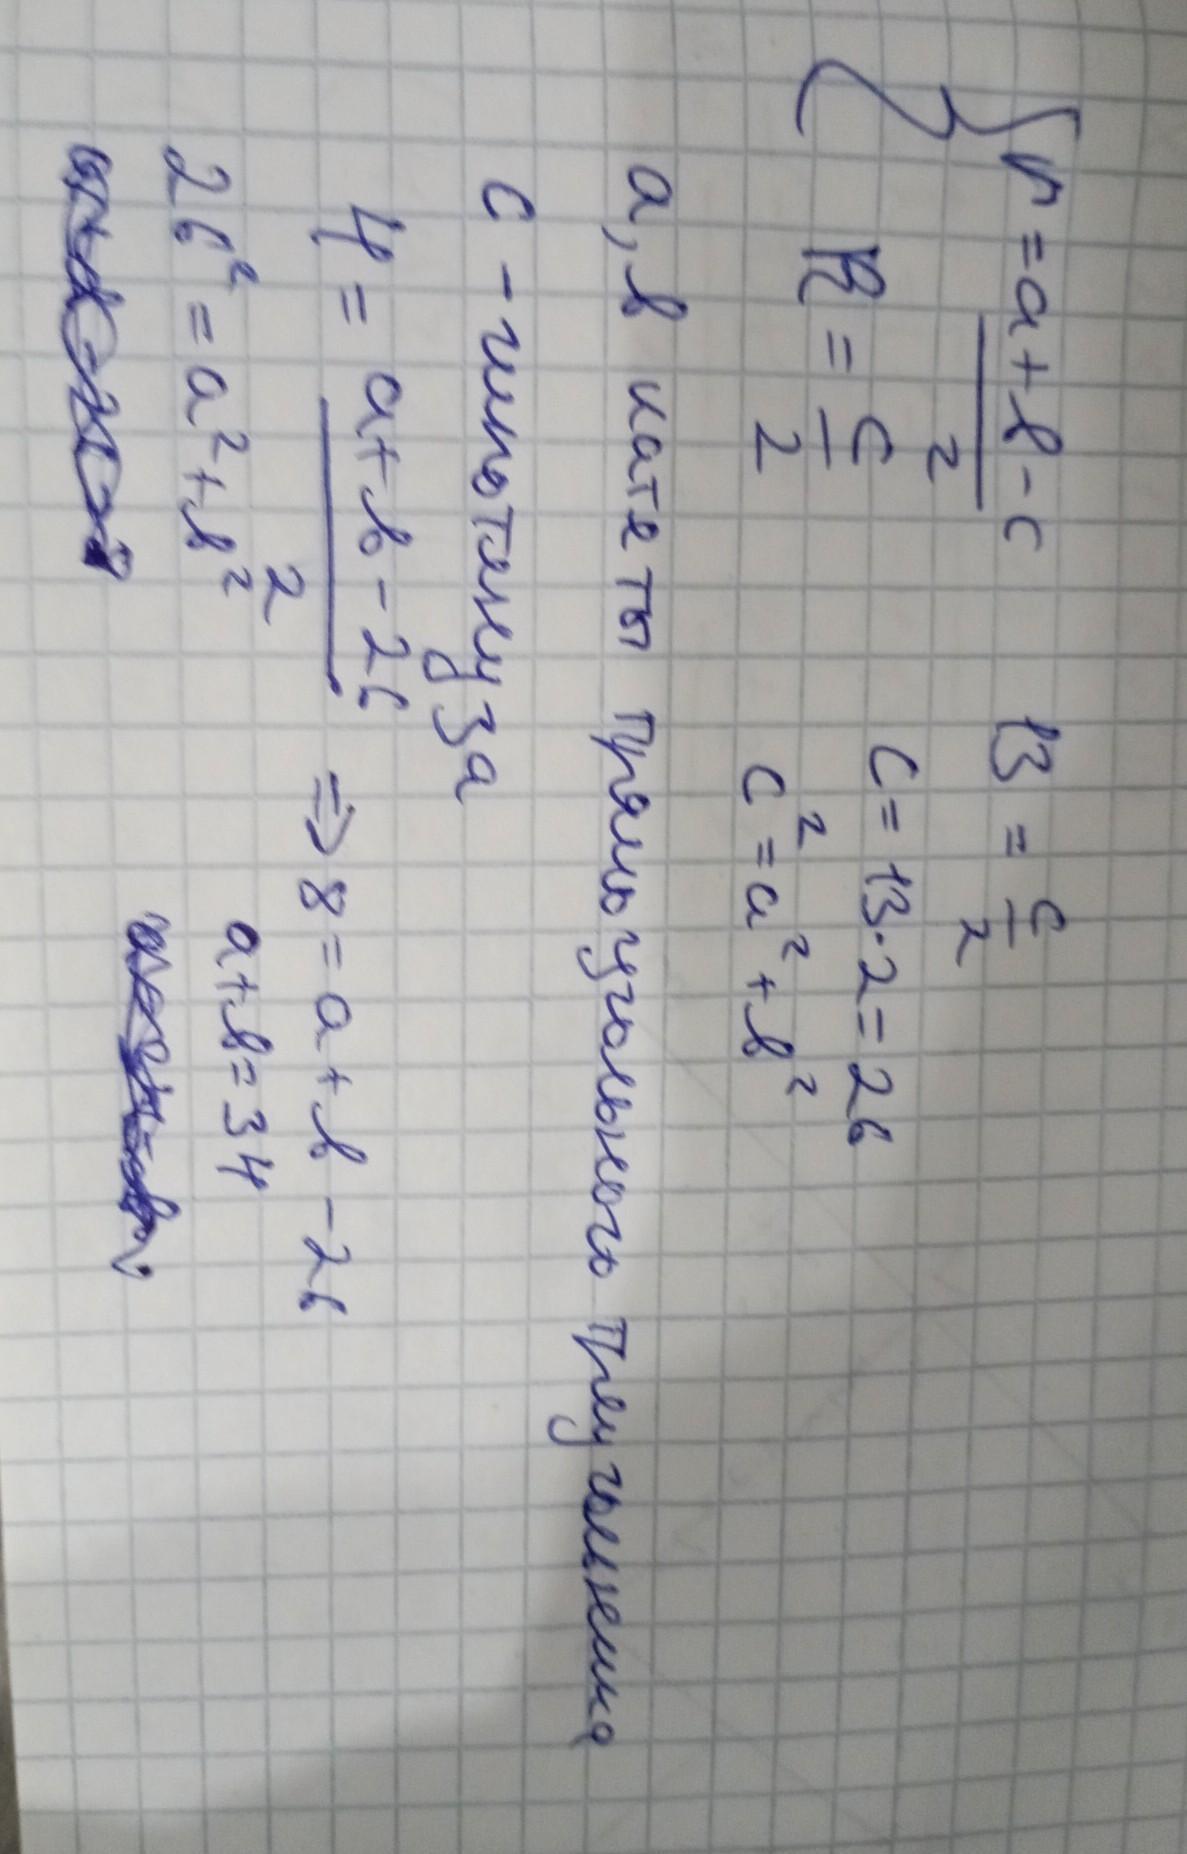 r = a+b-c
2
R = c
2
13 = c
2
c = 13·2 = 26
c² = a² + b²
a, в катеты прямоугольного треугольника
c - гипотенуза
4 = a+b-26
2
⇒ 8 = a+b-26
26² = a² + b²
a+b = 34